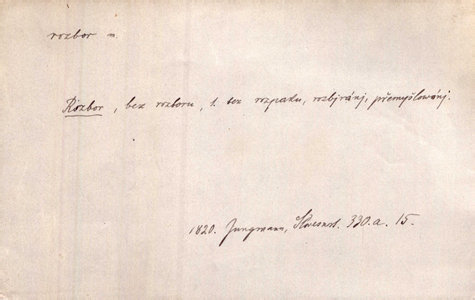 rozbor m
Rozbor, bez rozboru, t. bez rozpaku, rozbjránj, přemyšlowánj.
1820. Jungmann, Slovesnost. 330.a. 15.